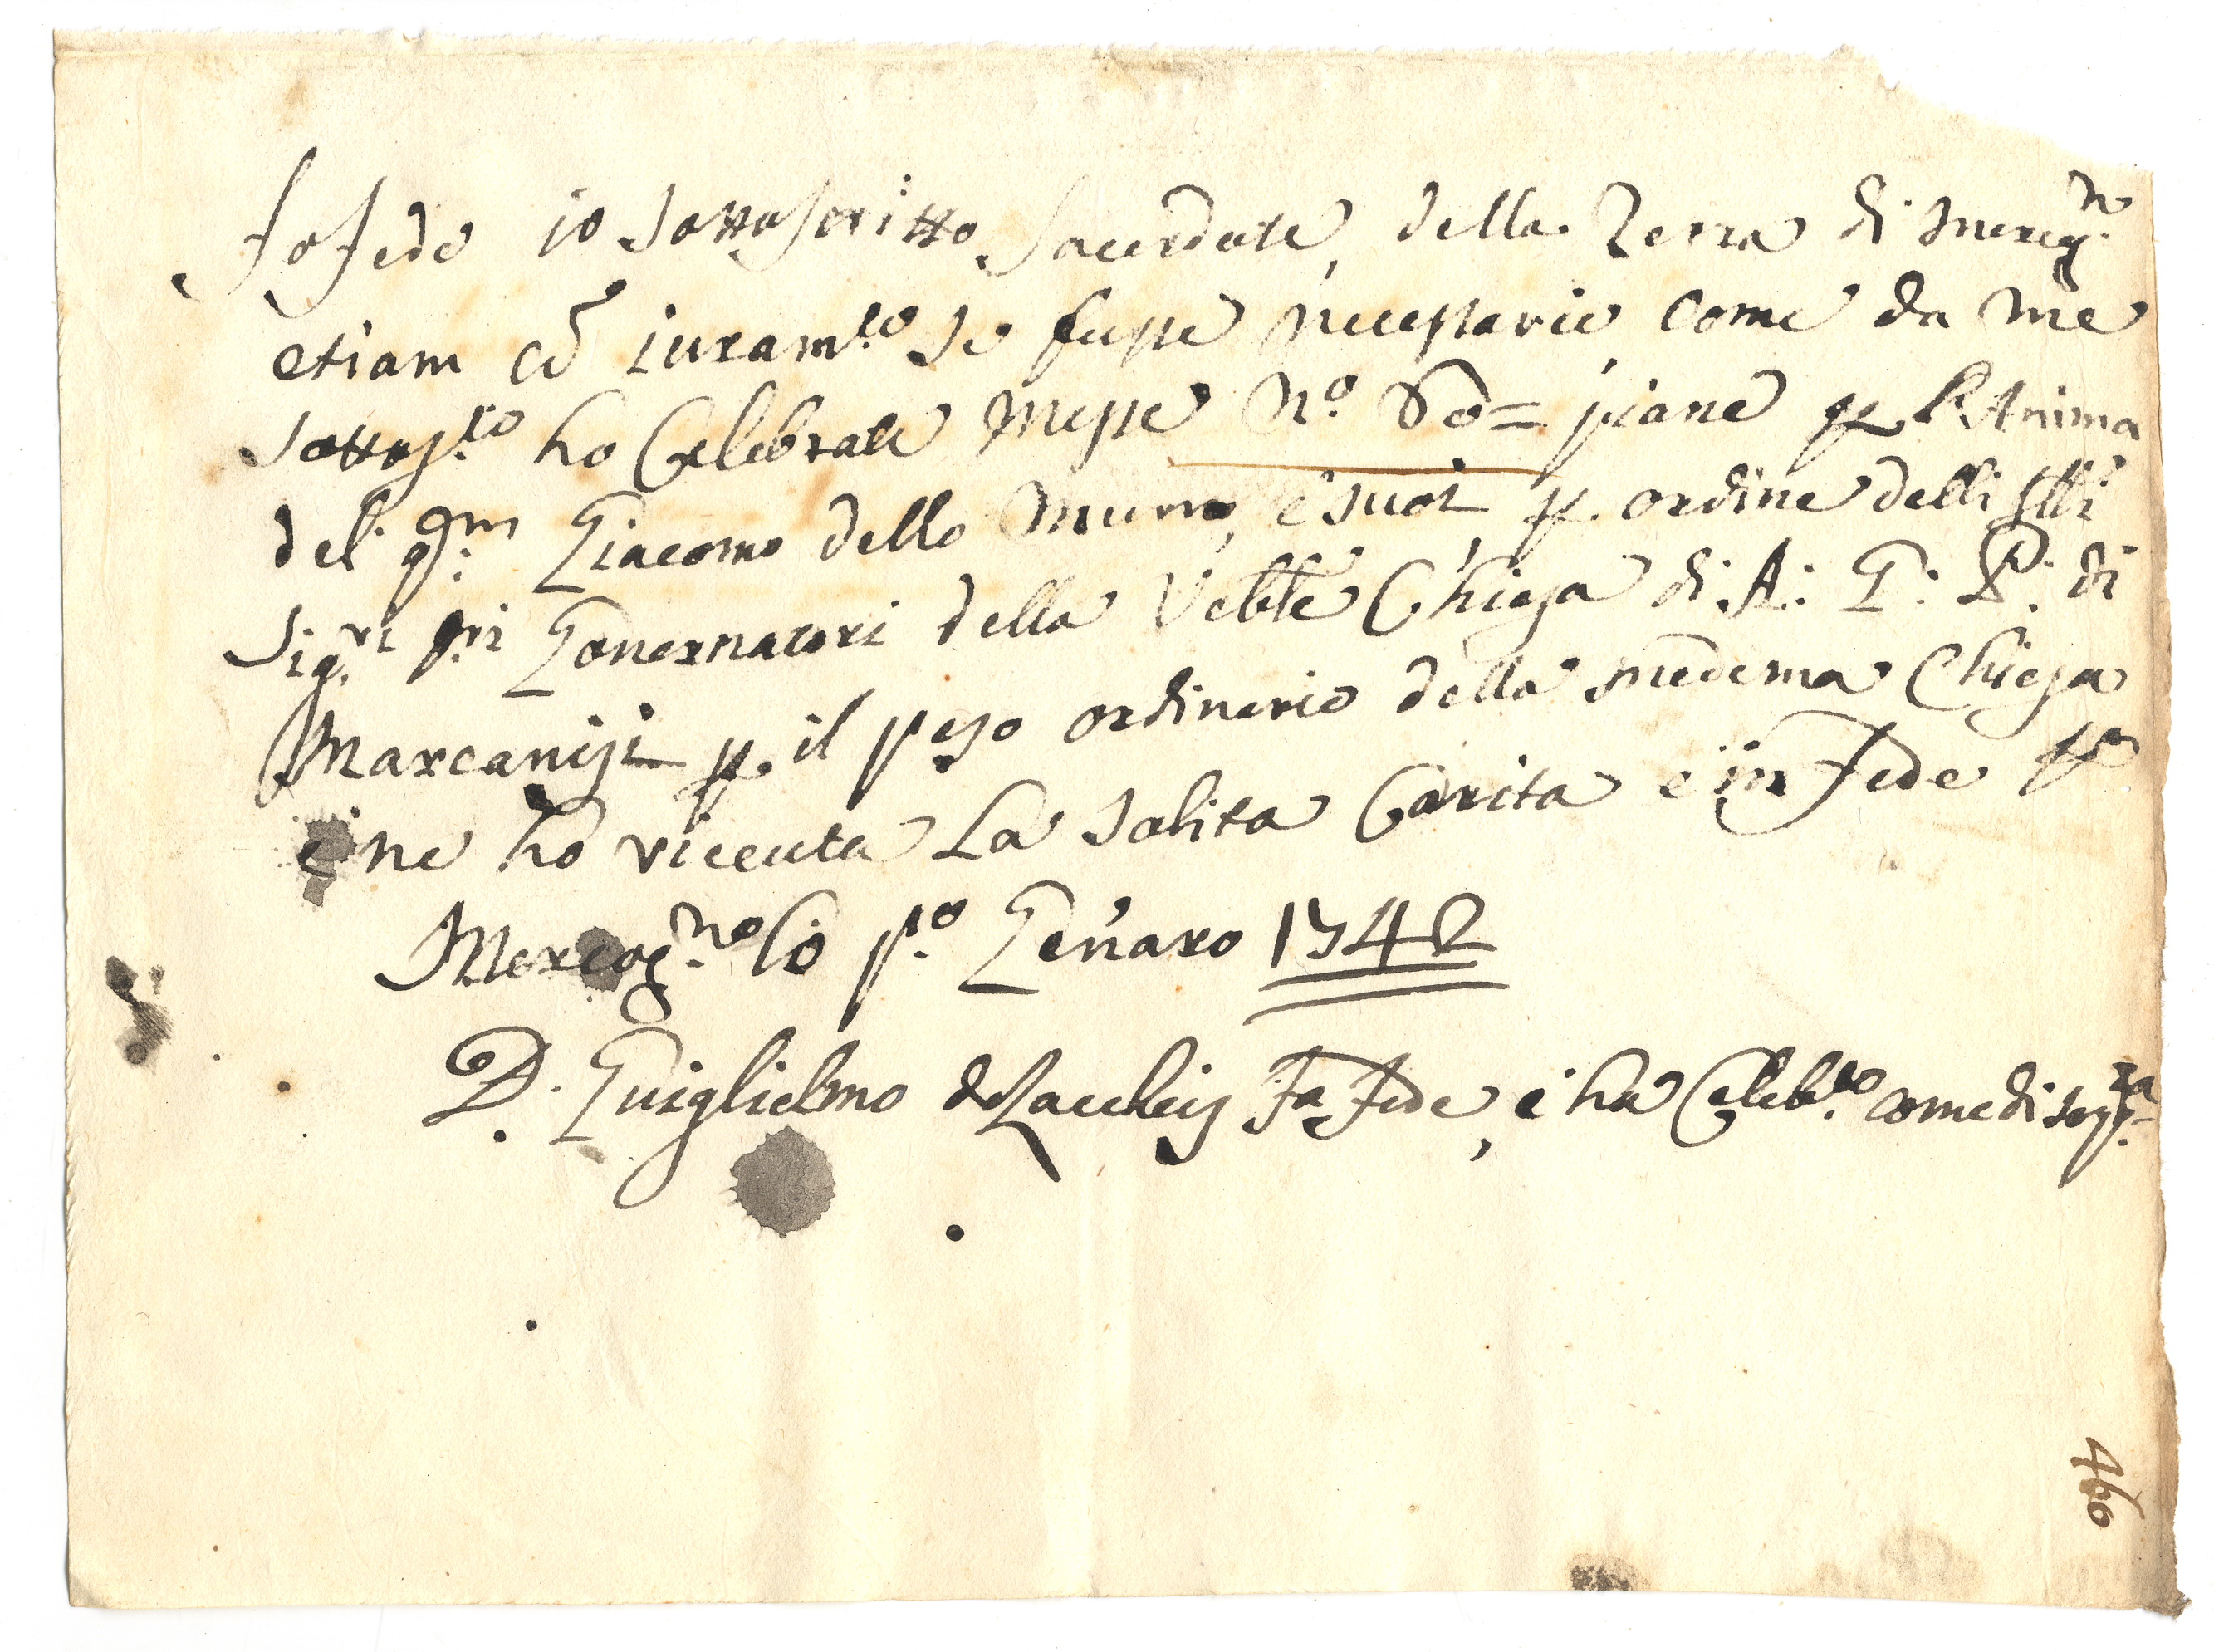 Fo fede io sottoscritto Sacerdote, della Terra di Mercg.no
etiam cō iuram.to se fusse necessario, come da me
sottos.to ho Celebrate Messe N.o 60= piane p l'Anima
del q.m Giacomo dello Muro, e suoi p. ordine delli Ill.i
Sig.ri P.ri Gouernatori della Veble Chiesa di A: G: P: di
Marcanisi p. il peso ordinario della medema Chiesa
e ne ho riceuta la solita Carita e in fede
Mercog.no lo p.o Genaro 1742
D. Guiglielmo de Fa Fede, e ha Celeb.to come di sop.ra
460